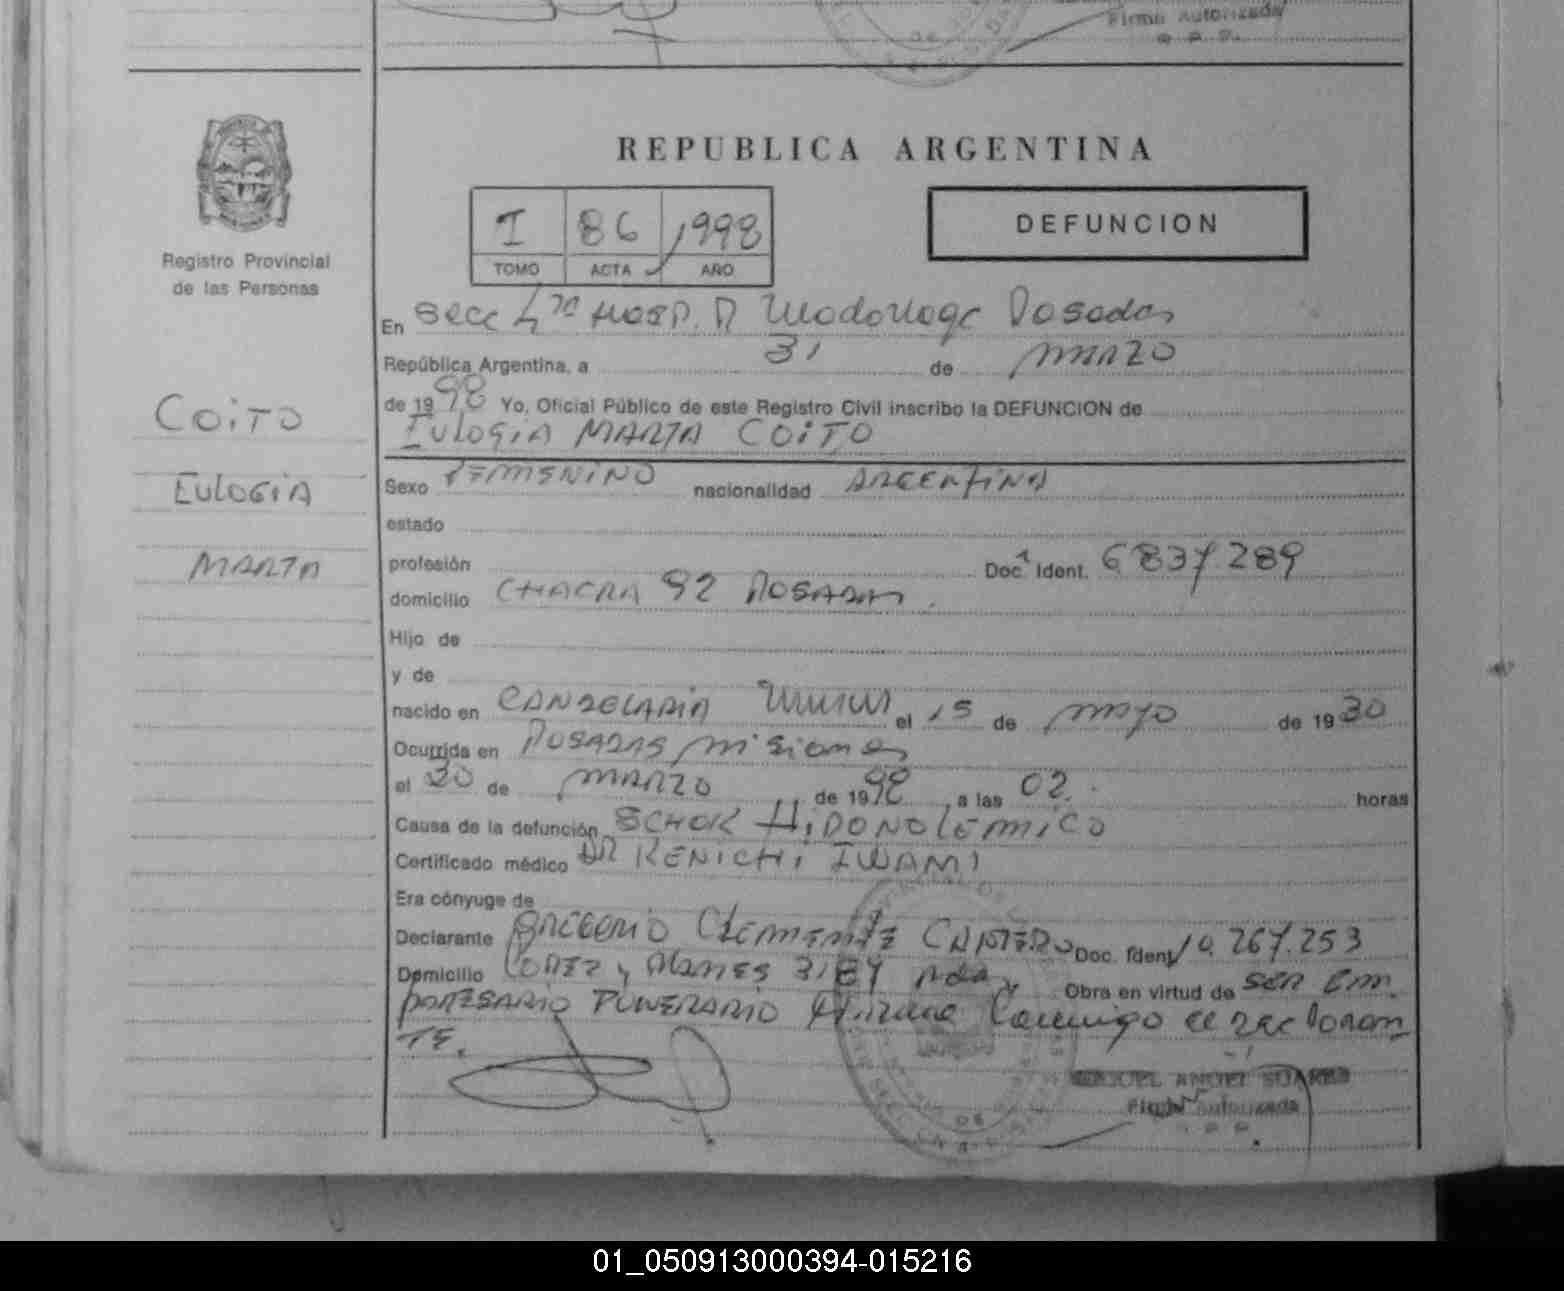 Firma Autorizada
REPUBLICA ARGENTINA
I 86 1998
TOMO ACTA AÑO
DEFUNCION
Registro Provincial
de las Personas
COITO
EULOGIA
MARTA
En Secc 4ta HOSP. R Madariaga Posadas
República Argentina, a 31 de MARZO
de 1998 Yo, Oficial Público de este Registro Civil inscribo la DEFUNCION de
EULOGIA MARTA COITO
Sexo FEMENINO nacionalidad ARGENTINA
estado
profesión Doc. Ident. 6.837.289
domicilio CHACRA 92 POSADAS.
Hijo de
y de
nacido en CANDELARIA el 15 de mayo de 1930
Ocurrida en POSADAS misiones
el 30 de MARZO de 1998 a las 02. horas
Causa de la defunción SCHOK
Certificado médico DR KENICHI IWAMI
Era cónyuge de
Declarante GREGORIO CLEMENTE Doc. Ident 10.267.253
Domicilio LOPEZ y Planes Pdas Obra en virtud de ser Em
PRESARIO FUNERARIO Firma Conmigo el
TE.
MIGUEL ANGEL SUAREZ
Firma Autorizada
01_050913000394-015216